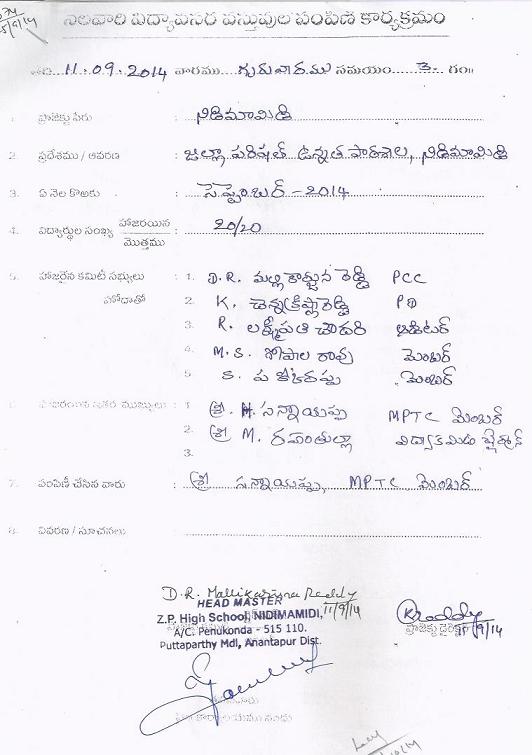 5/9/14
నెలవారి విద్యావసర వస్తువుల పంపిణీ కార్యక్రమం
తేది 11.09.2014 వారము గురువారము సమయం 3 గం॥
1. ప్రాజెక్టు పేరు : నిడిమామిడి
2. ప్రదేశము / ఆవరణ : జిల్లా పరిషత్ ఉన్నత పాఠశాల, నిడిమామిడి
3. ఏ నెల కొఱకు : సెప్టెంబర్ - 2014
4. విద్యార్థుల సంఖ్య హాజరయిన / మొత్తము : 20/20
5. హాజరైన కమిటీ సభ్యులు : 1. D.R. మల్లికార్జున రెడ్డి PCC
హోదాతో 2. K. చెన్నక్రిష్ణారెడ్డి PD
3. R. లక్ష్మీపతి చౌదరి ఆడిటర్
4. M.S. గోపాల రావు మెంబర్
5. మెంబర్
6. హాజరయిన ఇతర ముఖ్యులు : 1 శ్రీ H. సన్నాయప్ప MPTC మెంబర్
2. శ్రీ M. రహంతుల్లా విద్యాకమిటి ఛైర్మన్
3.
7. పంపిణీ చేసిన వారు : శ్రీ సన్నాయప్ప, MPTC మెంబర్
8. వివరణ / సూచనలు :
D.R. Mallikarjuna Reddy
11/9/14
HEAD MASTER
Z.P. High School, NIDIMAMIDI,
A/C. Penukonda - 515 110.
Puttaparthy Mdl, Anantapur Dist.
KReddy
11/9/14
ప్రాజెక్టు డైరెక్టర్